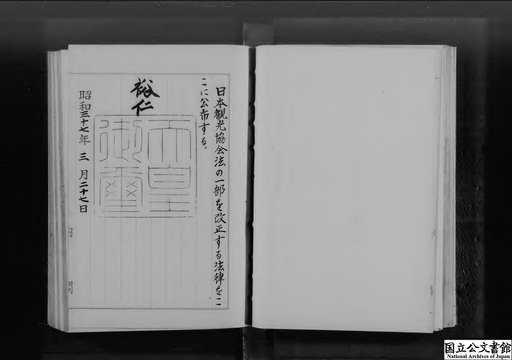 日本観光協会法の一部を改正する法律をこ
こに公布する。
裕仁
天皇
御璽
昭和三十七年三月二十七日
国立公文書館
National Archives of Japan